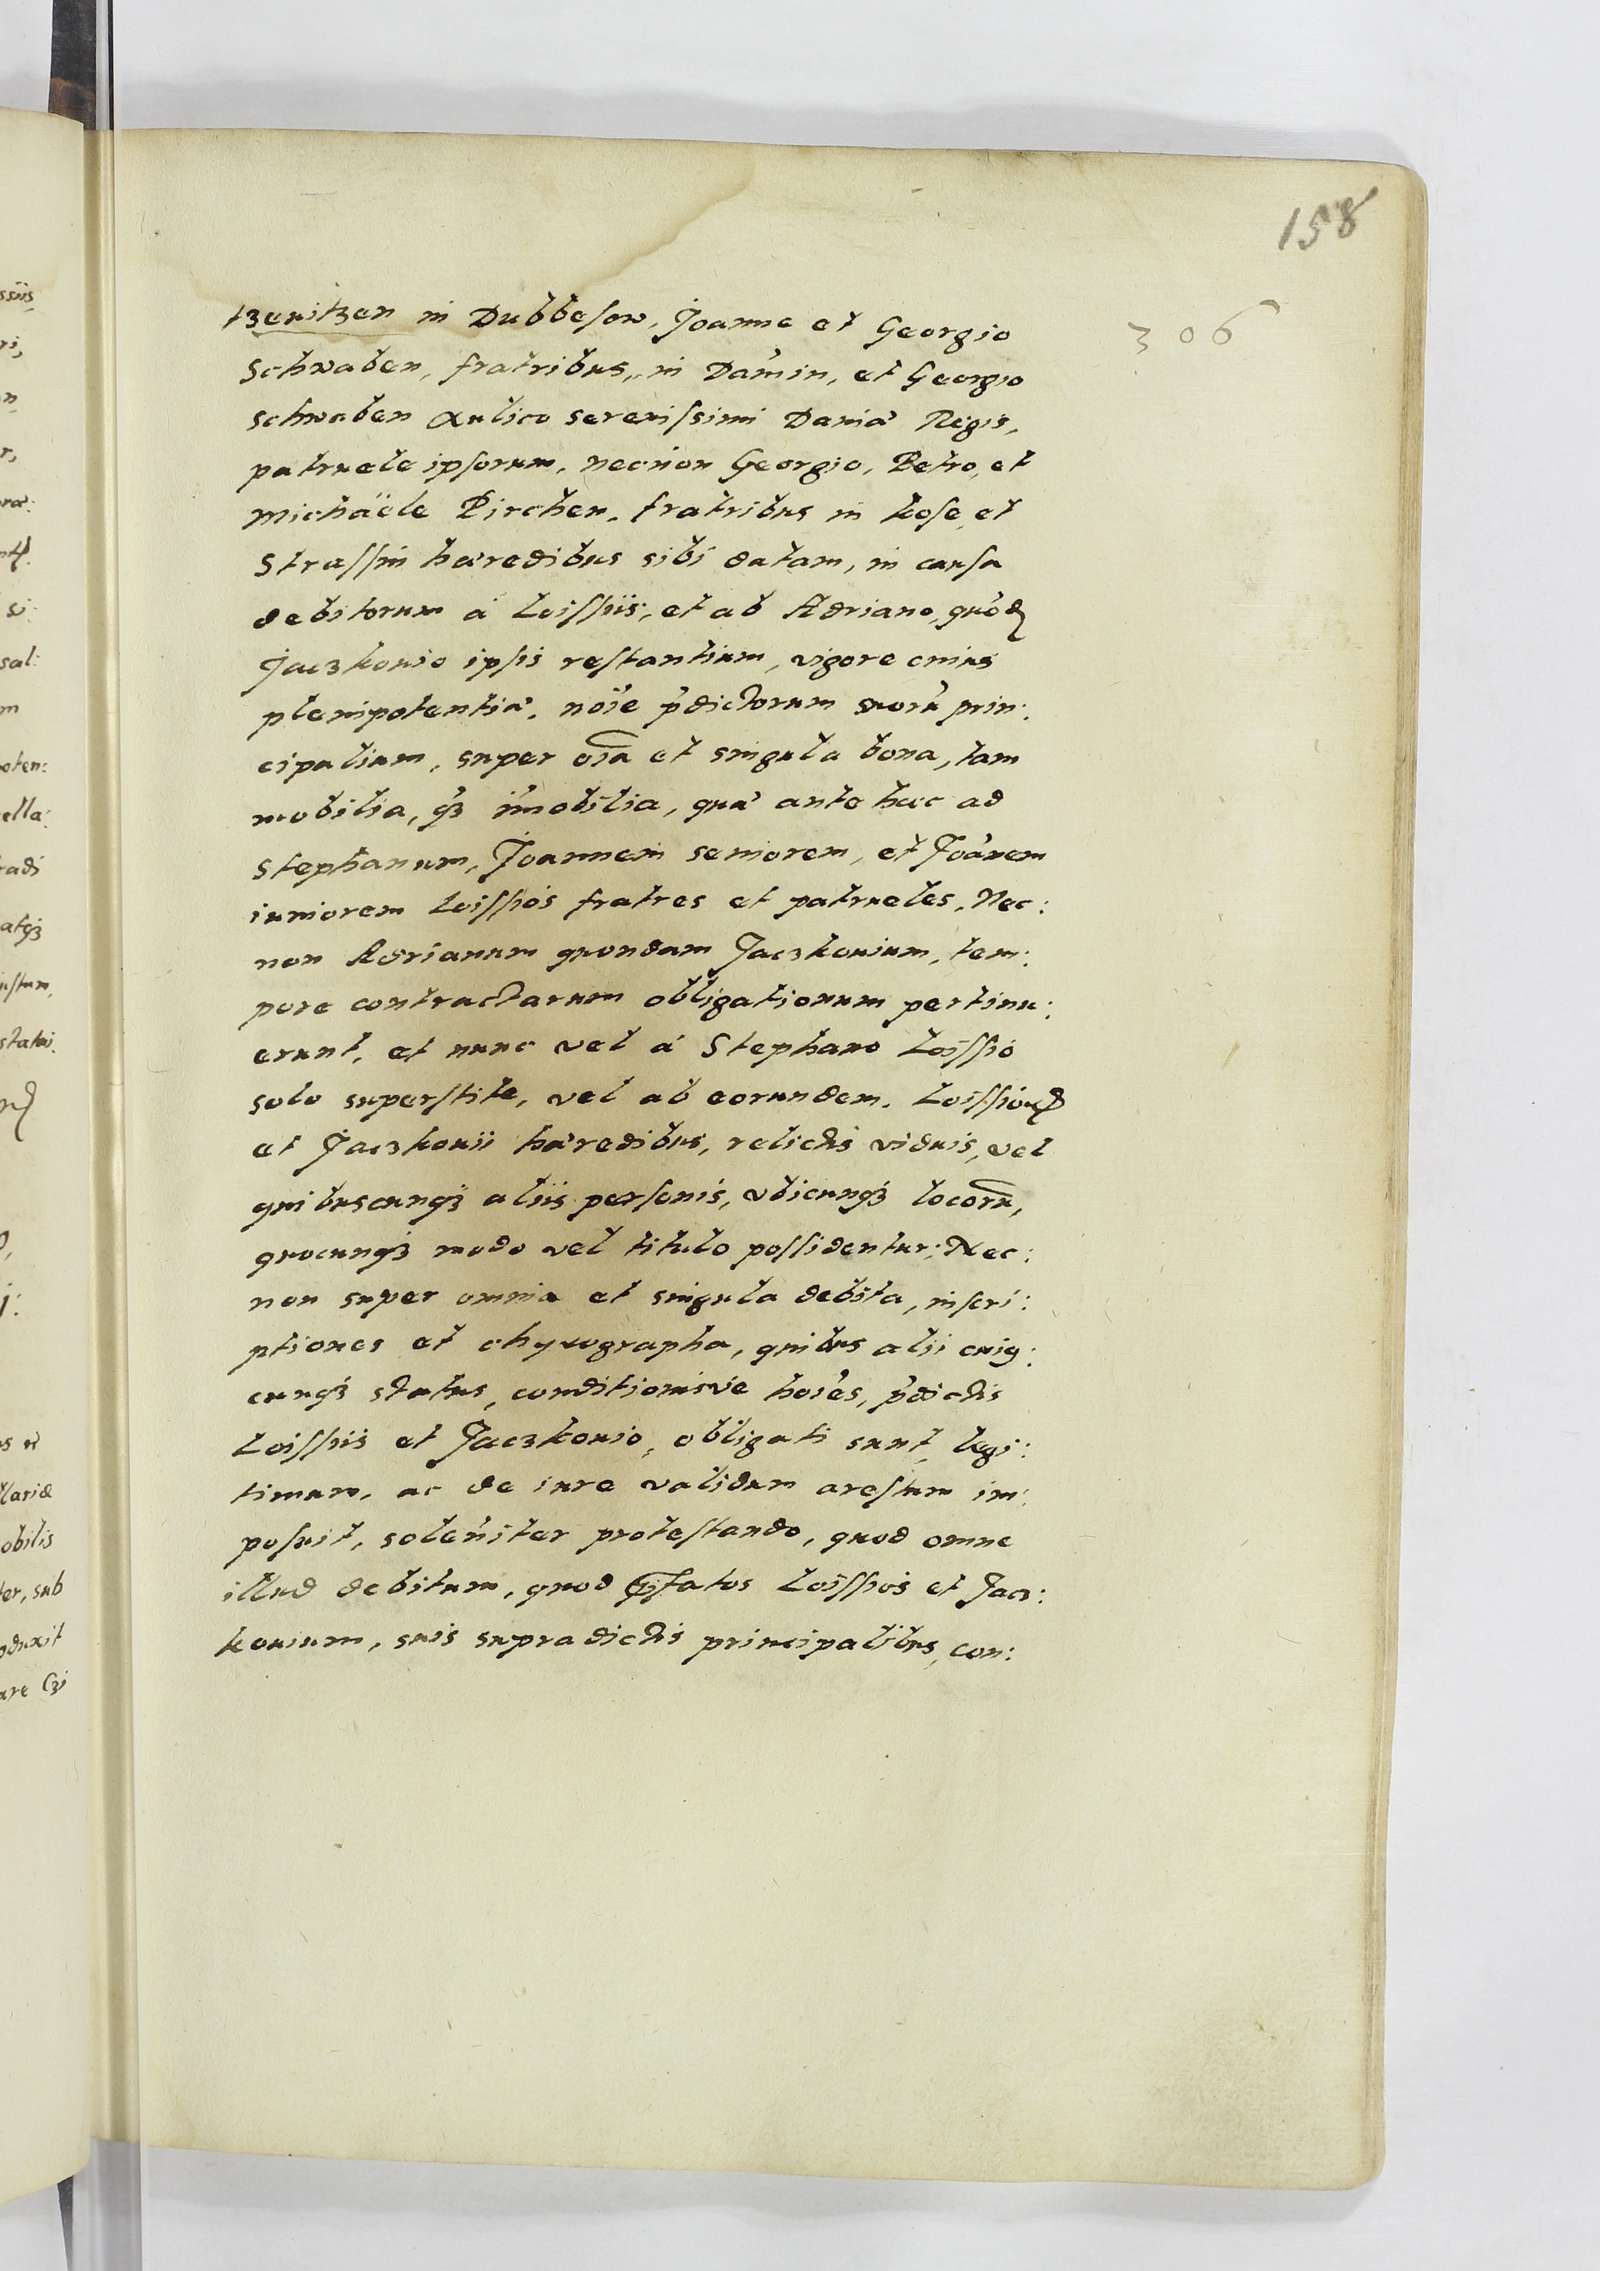 158
306
tzeuitzen in Dubbesow, Joanne et Georgio
Schwaben, fratribus, in Dam̃in, et Georgio
Schwaben Aulico serenissimi Daniæ Regis,
patruele ipsorum, necnon Georgio, Petro, et
Michaële Pirchen, fratribus in kose et
Strassin hæredibus sibi datam, in causa
debitorum à Loissiis, et ab Adriano, quõd
Jaczkouio ipsis restantium, vigore cuius
plenipotentiæ, nõie p̃dictorum suorũ prin:
cipalium, super oĩa et singula bona, tam
mobilia, q̃ꝫ im̃obilia, quæ ante hac ad
Stephanum, Joannem seniorem, et Joãnem
iuniorem Loissios fratres et patrueles, Nec:
non Adrianum quondam Jaczkouium, tem:
pore contractarum obligationum pertinu:
erunt, et nunc vel à Stephano Loissio
solo superstite, vel ab eorundem, Loissioꝝ
et Jaczkouii hæredibus, relictis viduis, vel
quibuscunqꝫ aliis personis, vbicunqꝫ locorũ,
quocunqꝫ modo vel titulo possidentur; Nec:
non super omnia et singula debita, inscri:
ptiones et chyrographa, quibus alii cuiꝰ:
cunqꝫ status, conditionisve hoĩes, p̃dictis
Loissiis et Jaczkouio, obligati sunt, legi:
timum, ac de iure validum arestum im:
posuit, solẽniter protestando, quod omne
illud debitum, quod p̃fatos Loissios et Jacz:
kouium, suis supradictis principalibus, con:
ssiis
ri,
n
r,
sal:
m
oten:
ella:
radi
atqꝫ
istum,
statui
llariæ
obilis
ter, sub
oduxit